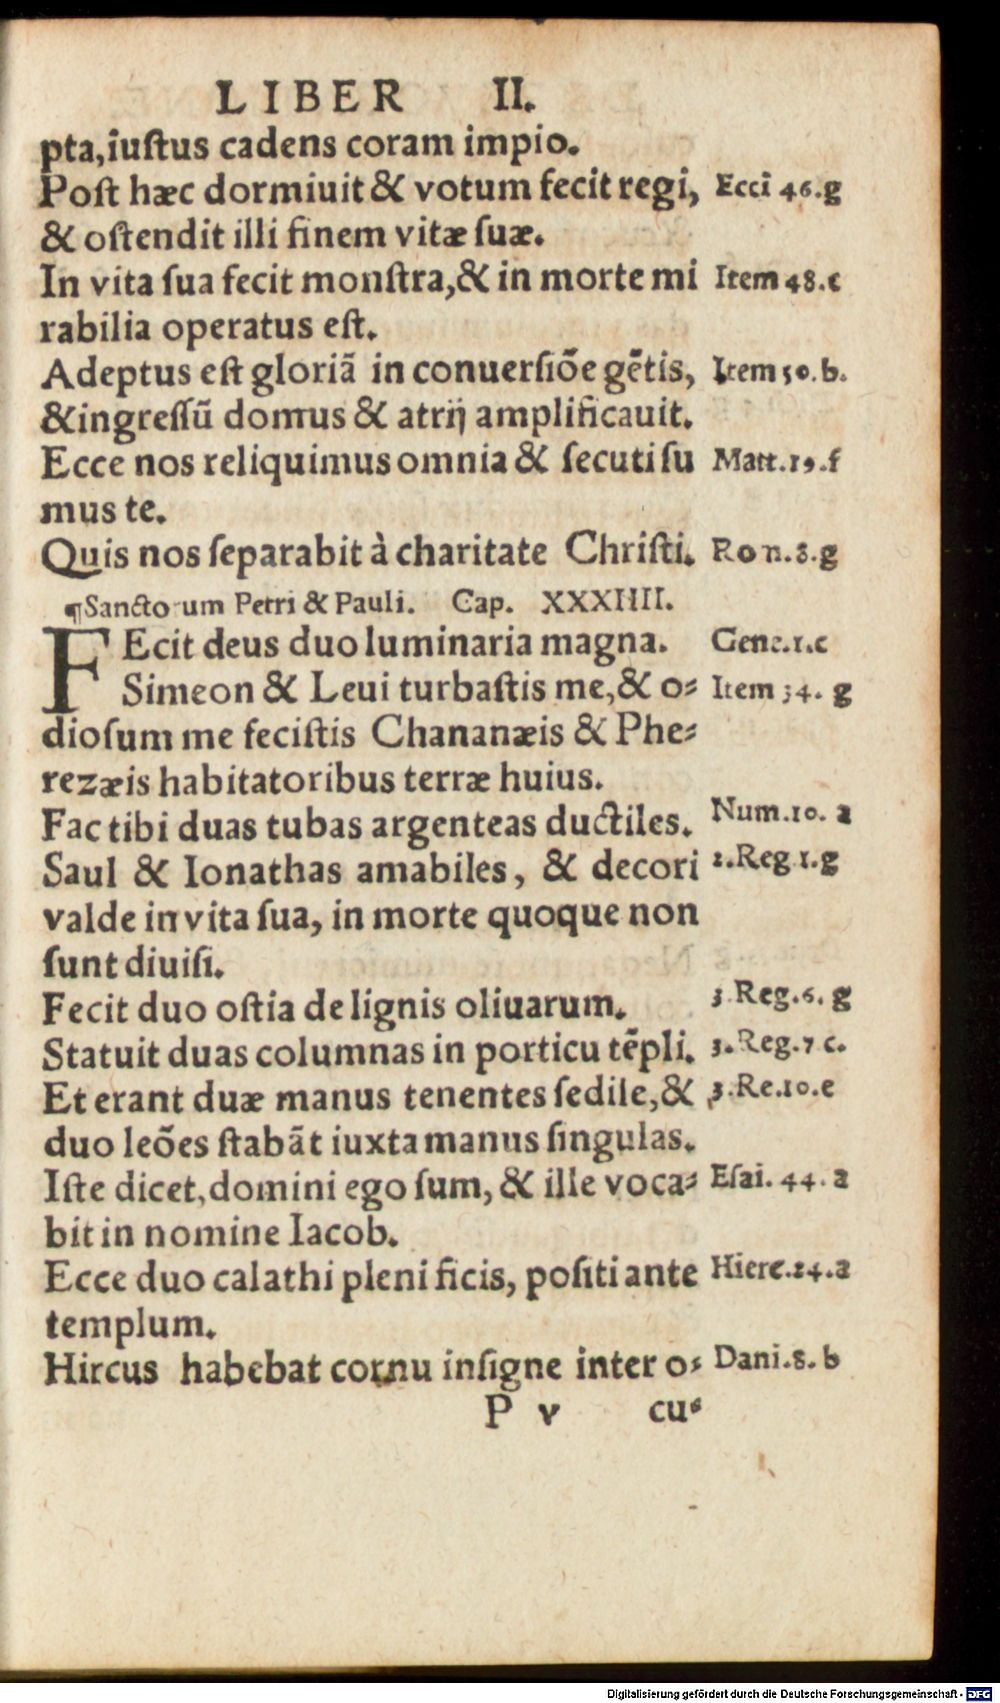 LIBER II.
pta,iuſtus cadens coram impio.
Poſt hæc dormiuit & votum fecit regi, Eccl 46.g
& oſtendit illi finem vitæ ſuæ.
In vita ſua fecit monſtra,& in morte mi Item 48.c
rabilia operatus eſt.
Adeptus eſt gloriã in conuerſiõe gẽtis, Item 50.b.
&ingreſſũ domus & atrij amplificauit.
Ecce nos reliquimus omnia & ſecuti ſu Matt.19.f
mus te.
Quis nos ſeparabit à charitate Chriſti. Rom.8.g
¶Sanctorum Petri & Pauli. Cap. XXXIIII.
FEcit deus duo luminaria magna. Gene.1.c
Simeon & Leui turbaſtis me,& o⸗ Item 34. g
dioſum me feciſtis Chananæis & Phe⸗
rezæis habitatoribus terræ huius.
Fac tibi duas tubas argenteas ductiles. Num.10. a
Saul & Ionathas amabiles, & decori 2.Reg 1.g
valde in vita ſua, in morte quoque non
ſunt diuiſi.
Fecit duo oſtia de lignis oliuarum. 3.Reg.6. g
Statuit duas columnas in porticu tẽpli. 3.Reg.7 c.
Et erant duæ manus tenentes ſedile,& 3.Re.10.e
duo leões ſtabãt iuxta manus ſingulas.
Iſte dicet,domini ego ſum, & ille voca⸗ Eſai. 44. a
bit in nomine Iacob.
Ecce duo calathi pleni ficis, poſiti ante Hiere.24.a
templum.
Hircus habebat cornu inſigne inter o⸗ Dani.8. b
P v cu⸗
Digitalisierung gefördert durch die Deutsche Forschungsgemeinschaft - DFG